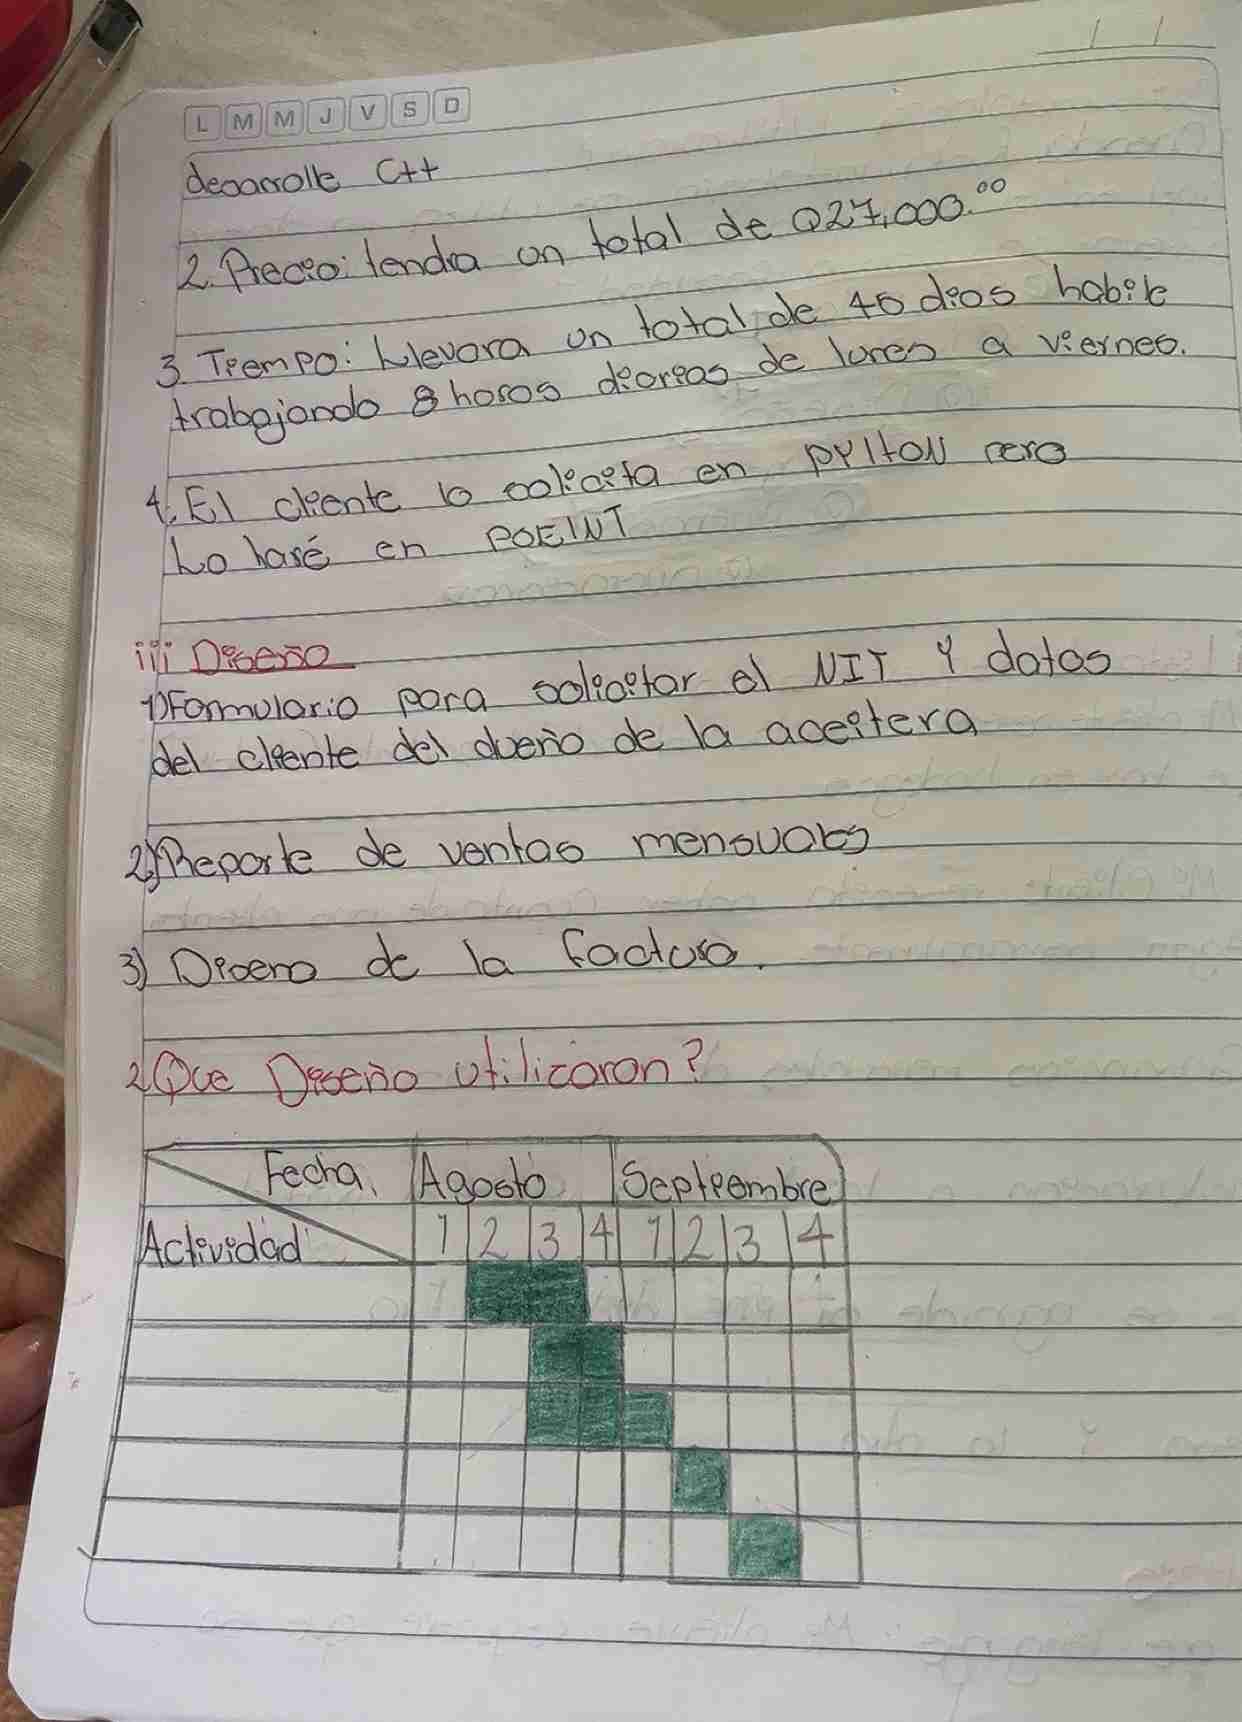 L M M J V S D
desarrolle C++
2. Precio: tendra un total de Q27,000.00
3. Tiempo: Llevara un total de 40 dias habile
trabajando 8 horas diarias de lunes a viernes.
4. El cliente lo solicita en PYItON pero
Lo haré en POEINT
iii Diseño
1) Formulario para solicitar el NIT Y datos
del cliente del dueño de la aceitera
2) Reporte de ventas mensuales
3) Diseño de la factura.
¿Que Diseño utilizaron?
Fecha. Agosto Septiembre
Actividad 1 2 3 4 1 2 3 4